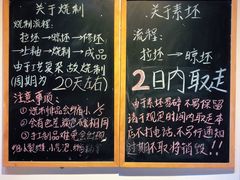 关于烧制
烧制流程：
拉坯→晾坯→修坯
→上釉→烧制→成品
由于工艺菜 烧制
(周期为20天左右)
注意事项：
① 烧
② 会有色差
③ 手工制品难免会出现
关于素坯
流程：
拉坯→晾坯
2日内取走
由于素坯易碎不易保留
请于规定时间内取走本
店不打电话,不另行通知
过期不取将销毁!!